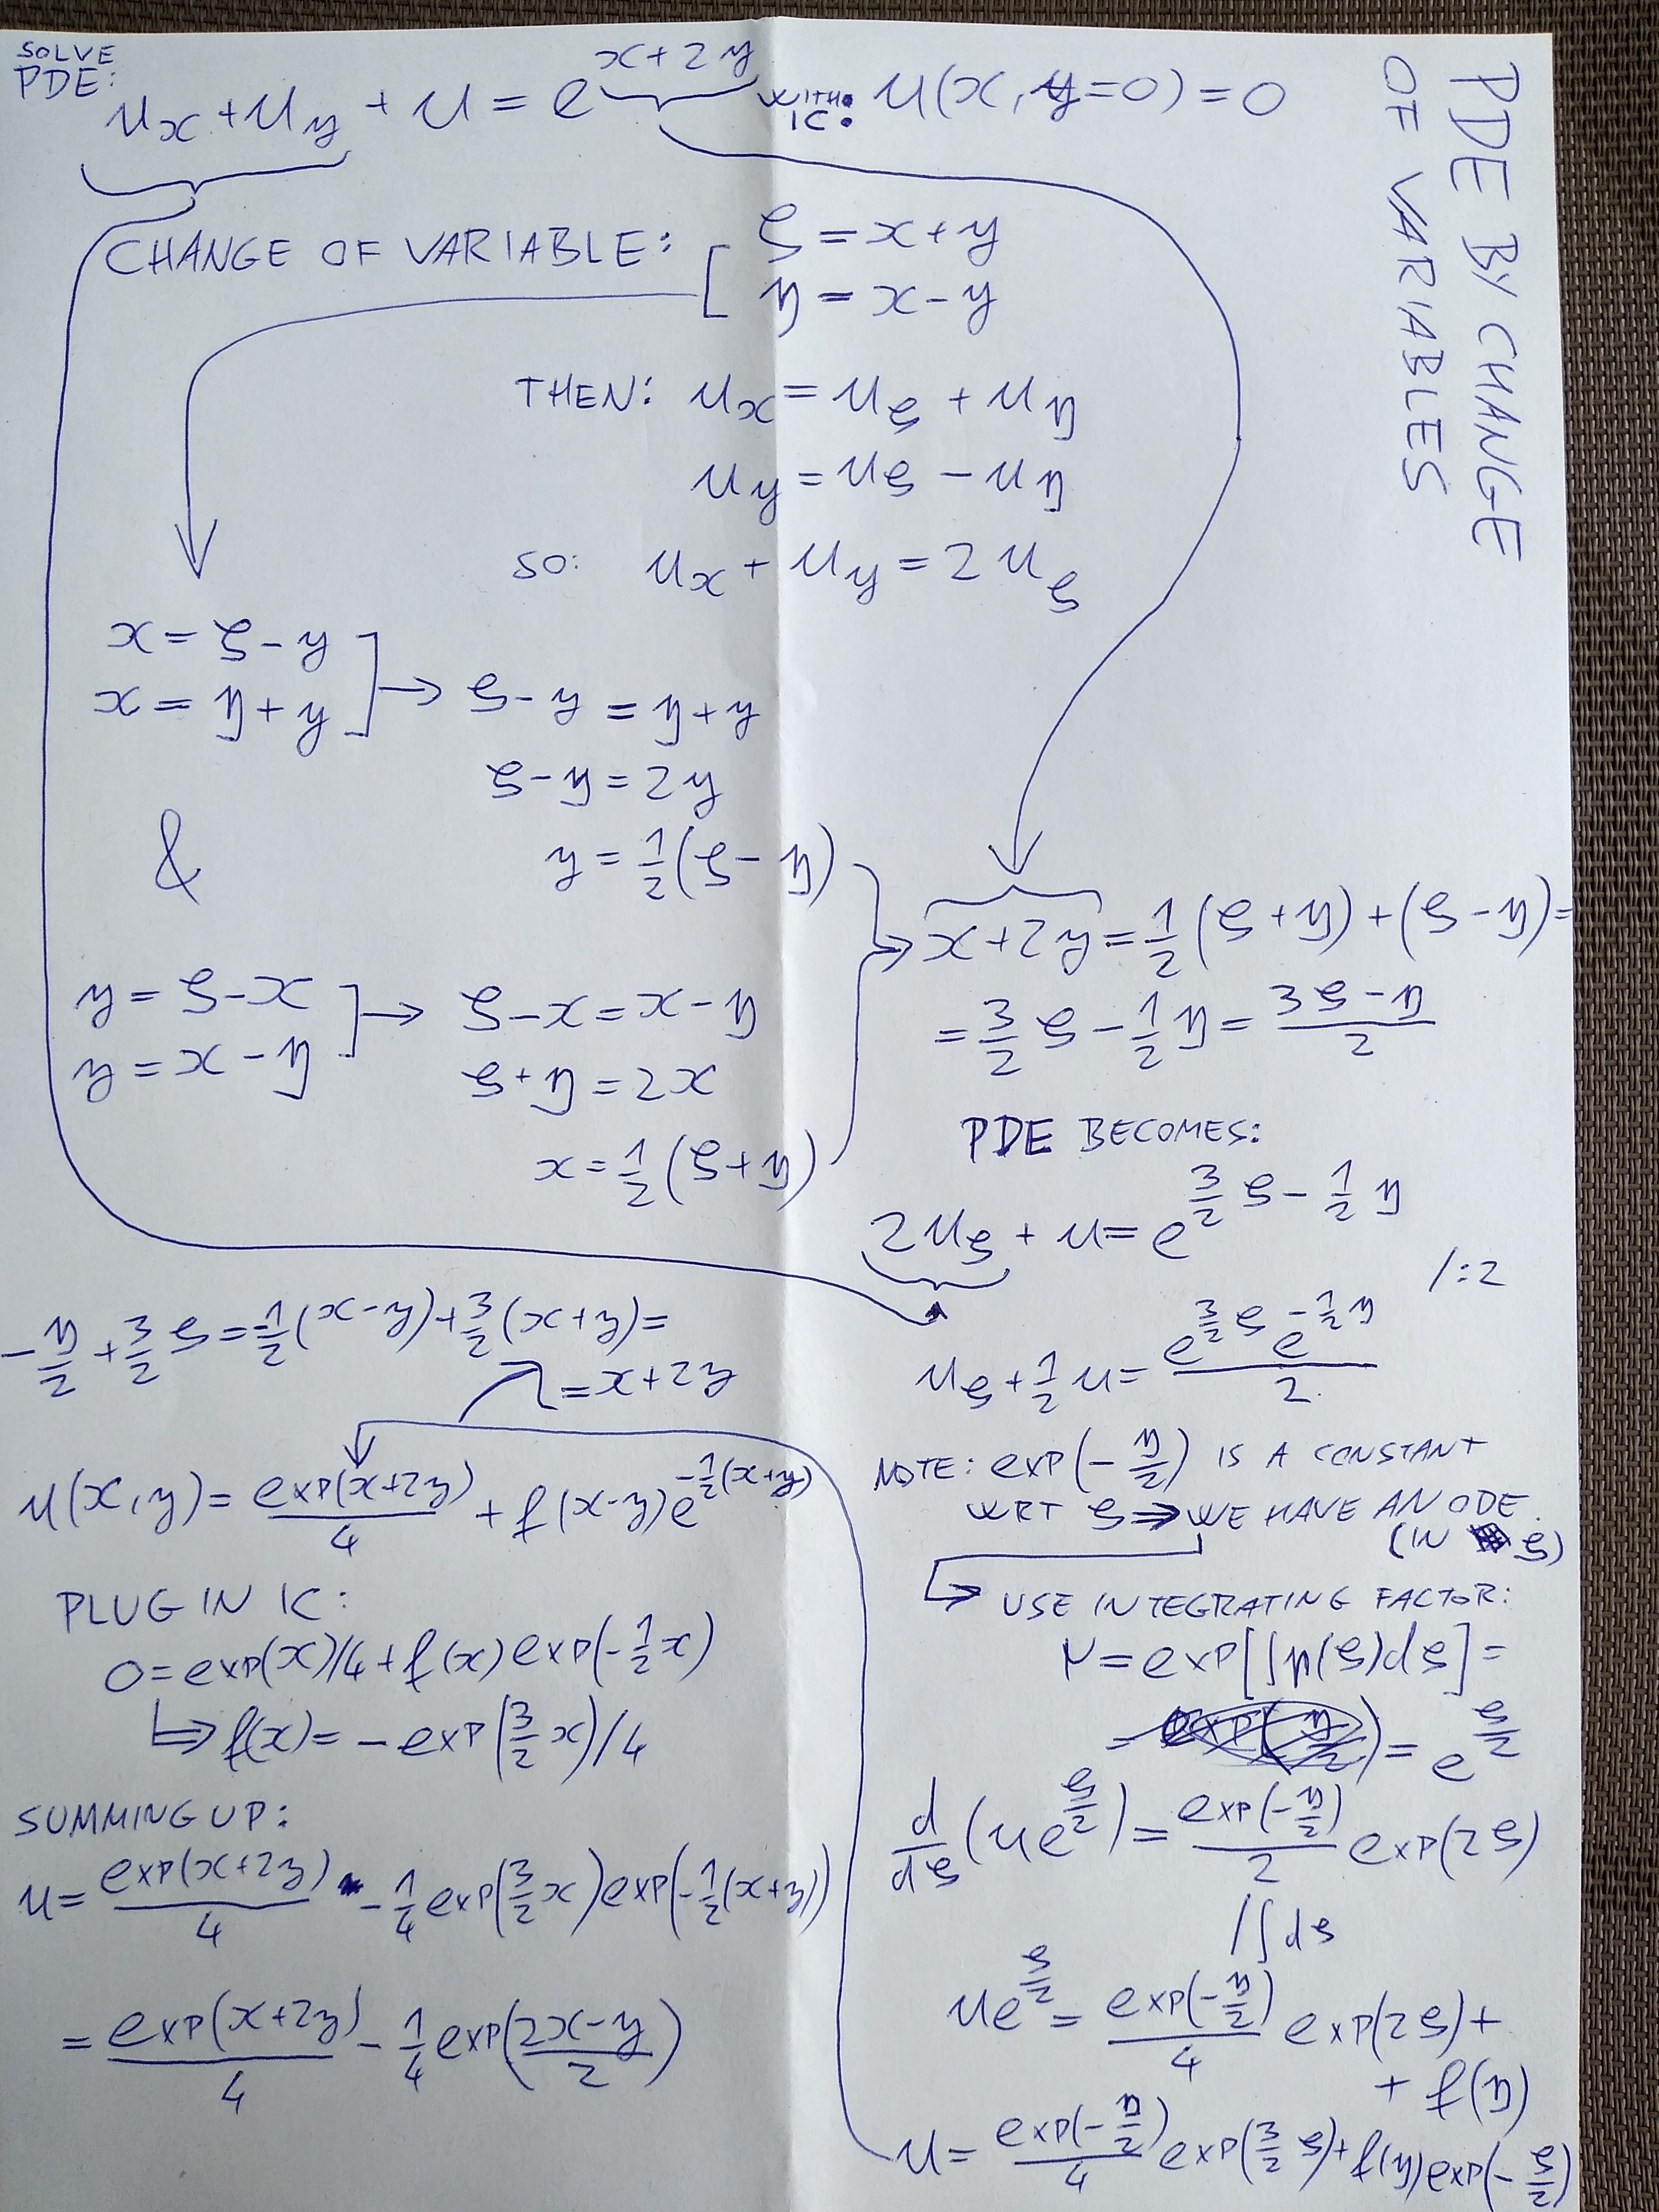 PDE BY CHANGE
OF VARIABLES
SOLVE
PDE: uₓ + u_y + u = e^(x+2y) WITH IC: u(x, y=0) = 0
CHANGE OF VARIABLE: [ ξ = x + y
η = x − y
THEN: uₓ = u_ξ + u_η
u_y = u_ξ − u_η
SO: uₓ + u_y = 2u_ξ
x = ξ − y
x = η + y ] → ξ − y = η + y
ξ − η = 2y
y = 1/2 (ξ − η)
&
y = ξ − x
y = x − η ] → ξ − x = x − η
ξ + η = 2x
x = 1/2 (ξ + η)
→ x + 2y = 1/2 (ξ + η) + (ξ − η) =
= 3/2 ξ − 1/2 η = (3ξ − η)/2
PDE BECOMES:
2u_ξ + u = e^(3/2 ξ − 1/2 η)
/:2
u_ξ + 1/2 u = (e^(3/2 ξ) e^(−1/2 η))/2
NOTE: exp(−η/2) IS A CONSTANT
WRT ξ ⇒ WE HAVE AN ODE
(IN ξ)
↳ USE INTEGRATING FACTOR:
μ = exp[∫p(ξ)dξ] =
= e^(ξ/2)
d/dξ (u e^(ξ/2)) = exp(−η/2)/2 exp(2ξ)
/∫dξ
u e^(ξ/2) = exp(−η/2)/4 exp(2ξ) +
+ f(η)
u = exp(−η/2)/4 exp(3/2 ξ) + f(η) exp(−ξ/2)
−η/2 + 3/2 ξ = −1/2 (x−y) + 3/2 (x+y) =
= x + 2y
u(x,y) = exp(x+2y)/4 + f(x−y) e^(−1/2 (x+y))
PLUG IN IC:
0 = exp(x)/4 + f(x) exp(−1/2 x)
↳⇒ f(x) = −exp(3/2 x)/4
SUMMING UP:
u = exp(x+2y)/4 − 1/4 exp(3/2 x) exp(−1/2 (x+y))
= exp(x+2y)/4 − 1/4 exp((2x−y)/2)